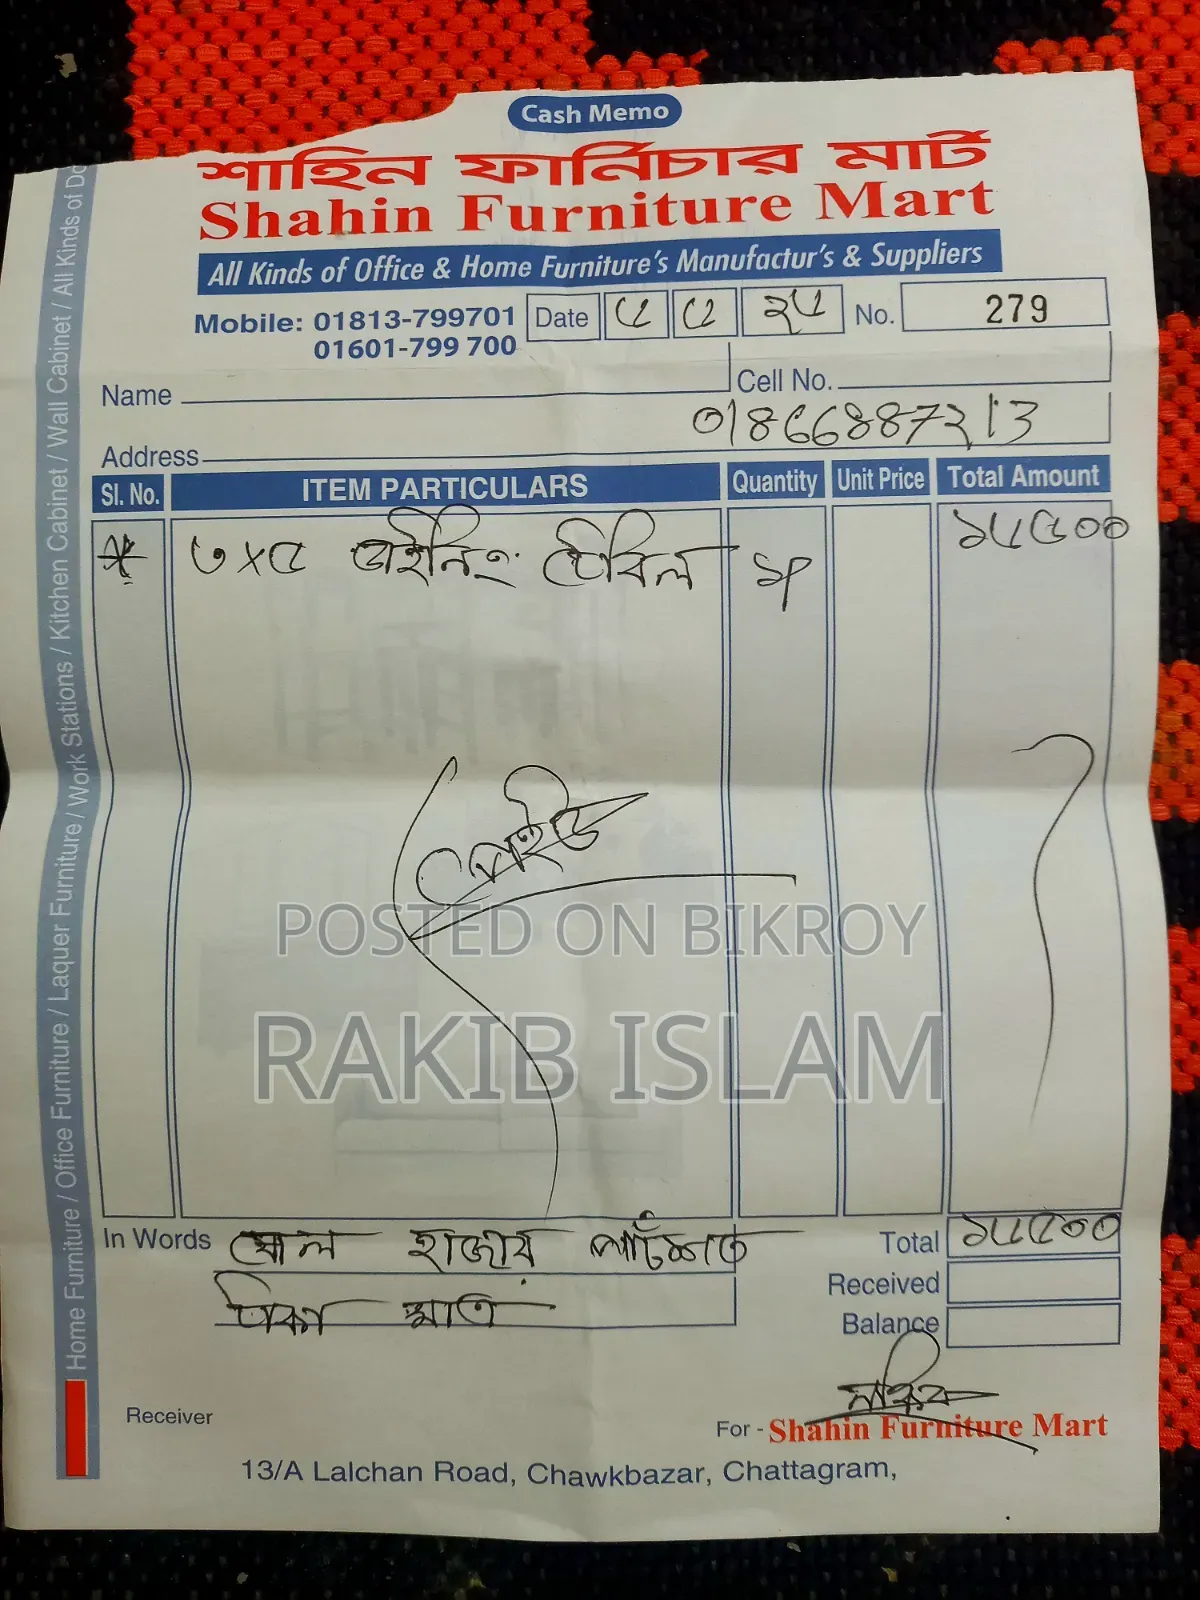 Cash Memo
শাহিন ফার্নিচার মার্ট
Shahin Furniture Mart
All Kinds of Office & Home Furniture's Manufactur's & Suppliers
Mobile: 01813-799701
01601-799 700
Date
No. 279
Name
Cell No.
Address
Sl. No. ITEM PARTICULARS Quantity Unit Price Total Amount
৩x৫ ডাইনিং টেবিল ১p ১৬৫০০
পেইড
POSTED ON BIKROY
RAKIB ISLAM
In Words ষোল হাজার পাঁচশত
টাকা মাত্র
Total ১৬৫০০
Received
Balance
Receiver
For - Shahin Furniture Mart
13/A Lalchan Road, Chawkbazar, Chattagram,
Home Furniture / Office Furniture / Laquer Furniture / Work Stations / Kitchen Cabinet / Wall Cabinet / All Kinds of